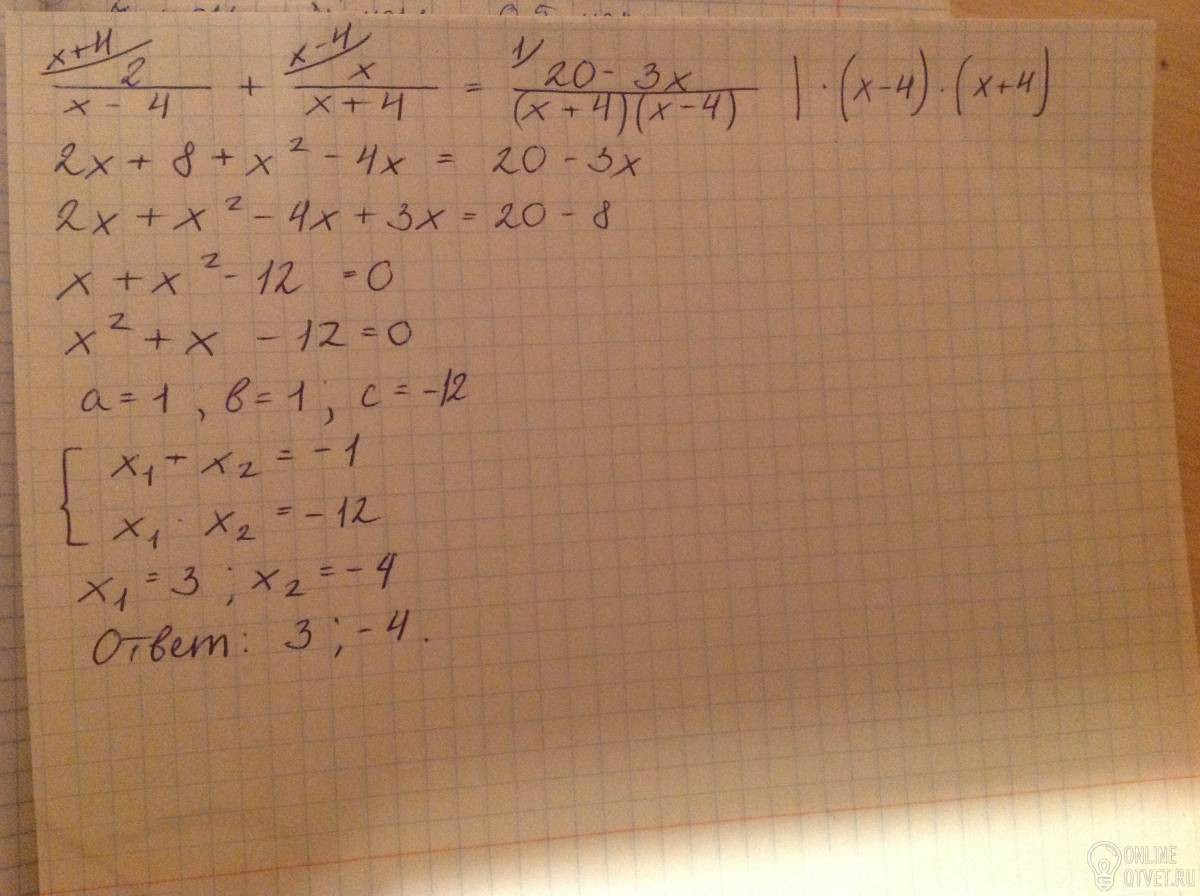 x+4 2 / x - 4 + x-4 x / x + 4 = 1 20 - 3x / (x + 4)(x - 4) | · (x-4) · (x+4)
2x + 8 + x² - 4x = 20 - 3x
2x + x² - 4x + 3x = 20 - 8
x + x² - 12 = 0
x² + x - 12 = 0
a = 1 , в = 1 ; c = -12
{ x₁ + x₂ = -1
x₁ · x₂ = -12
x₁ = 3 ; x₂ = -4
Ответ: 3 ; -4 .
ONLINE
OTVET.RU